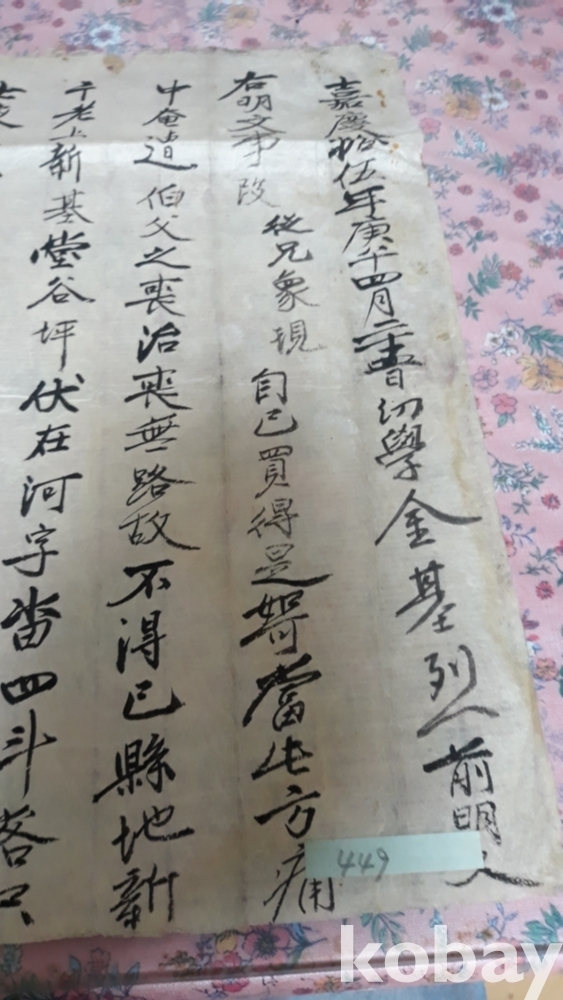 嘉慶拾伍年庚午四月二十五日幼學金基烈前明文
右明文事段從兄象現自己買得是如可當此方痛
中奄遭伯父之喪治喪無路故不得已縣地新
于老上新基堂谷坪伏在河字畓四斗落只
449
kobay